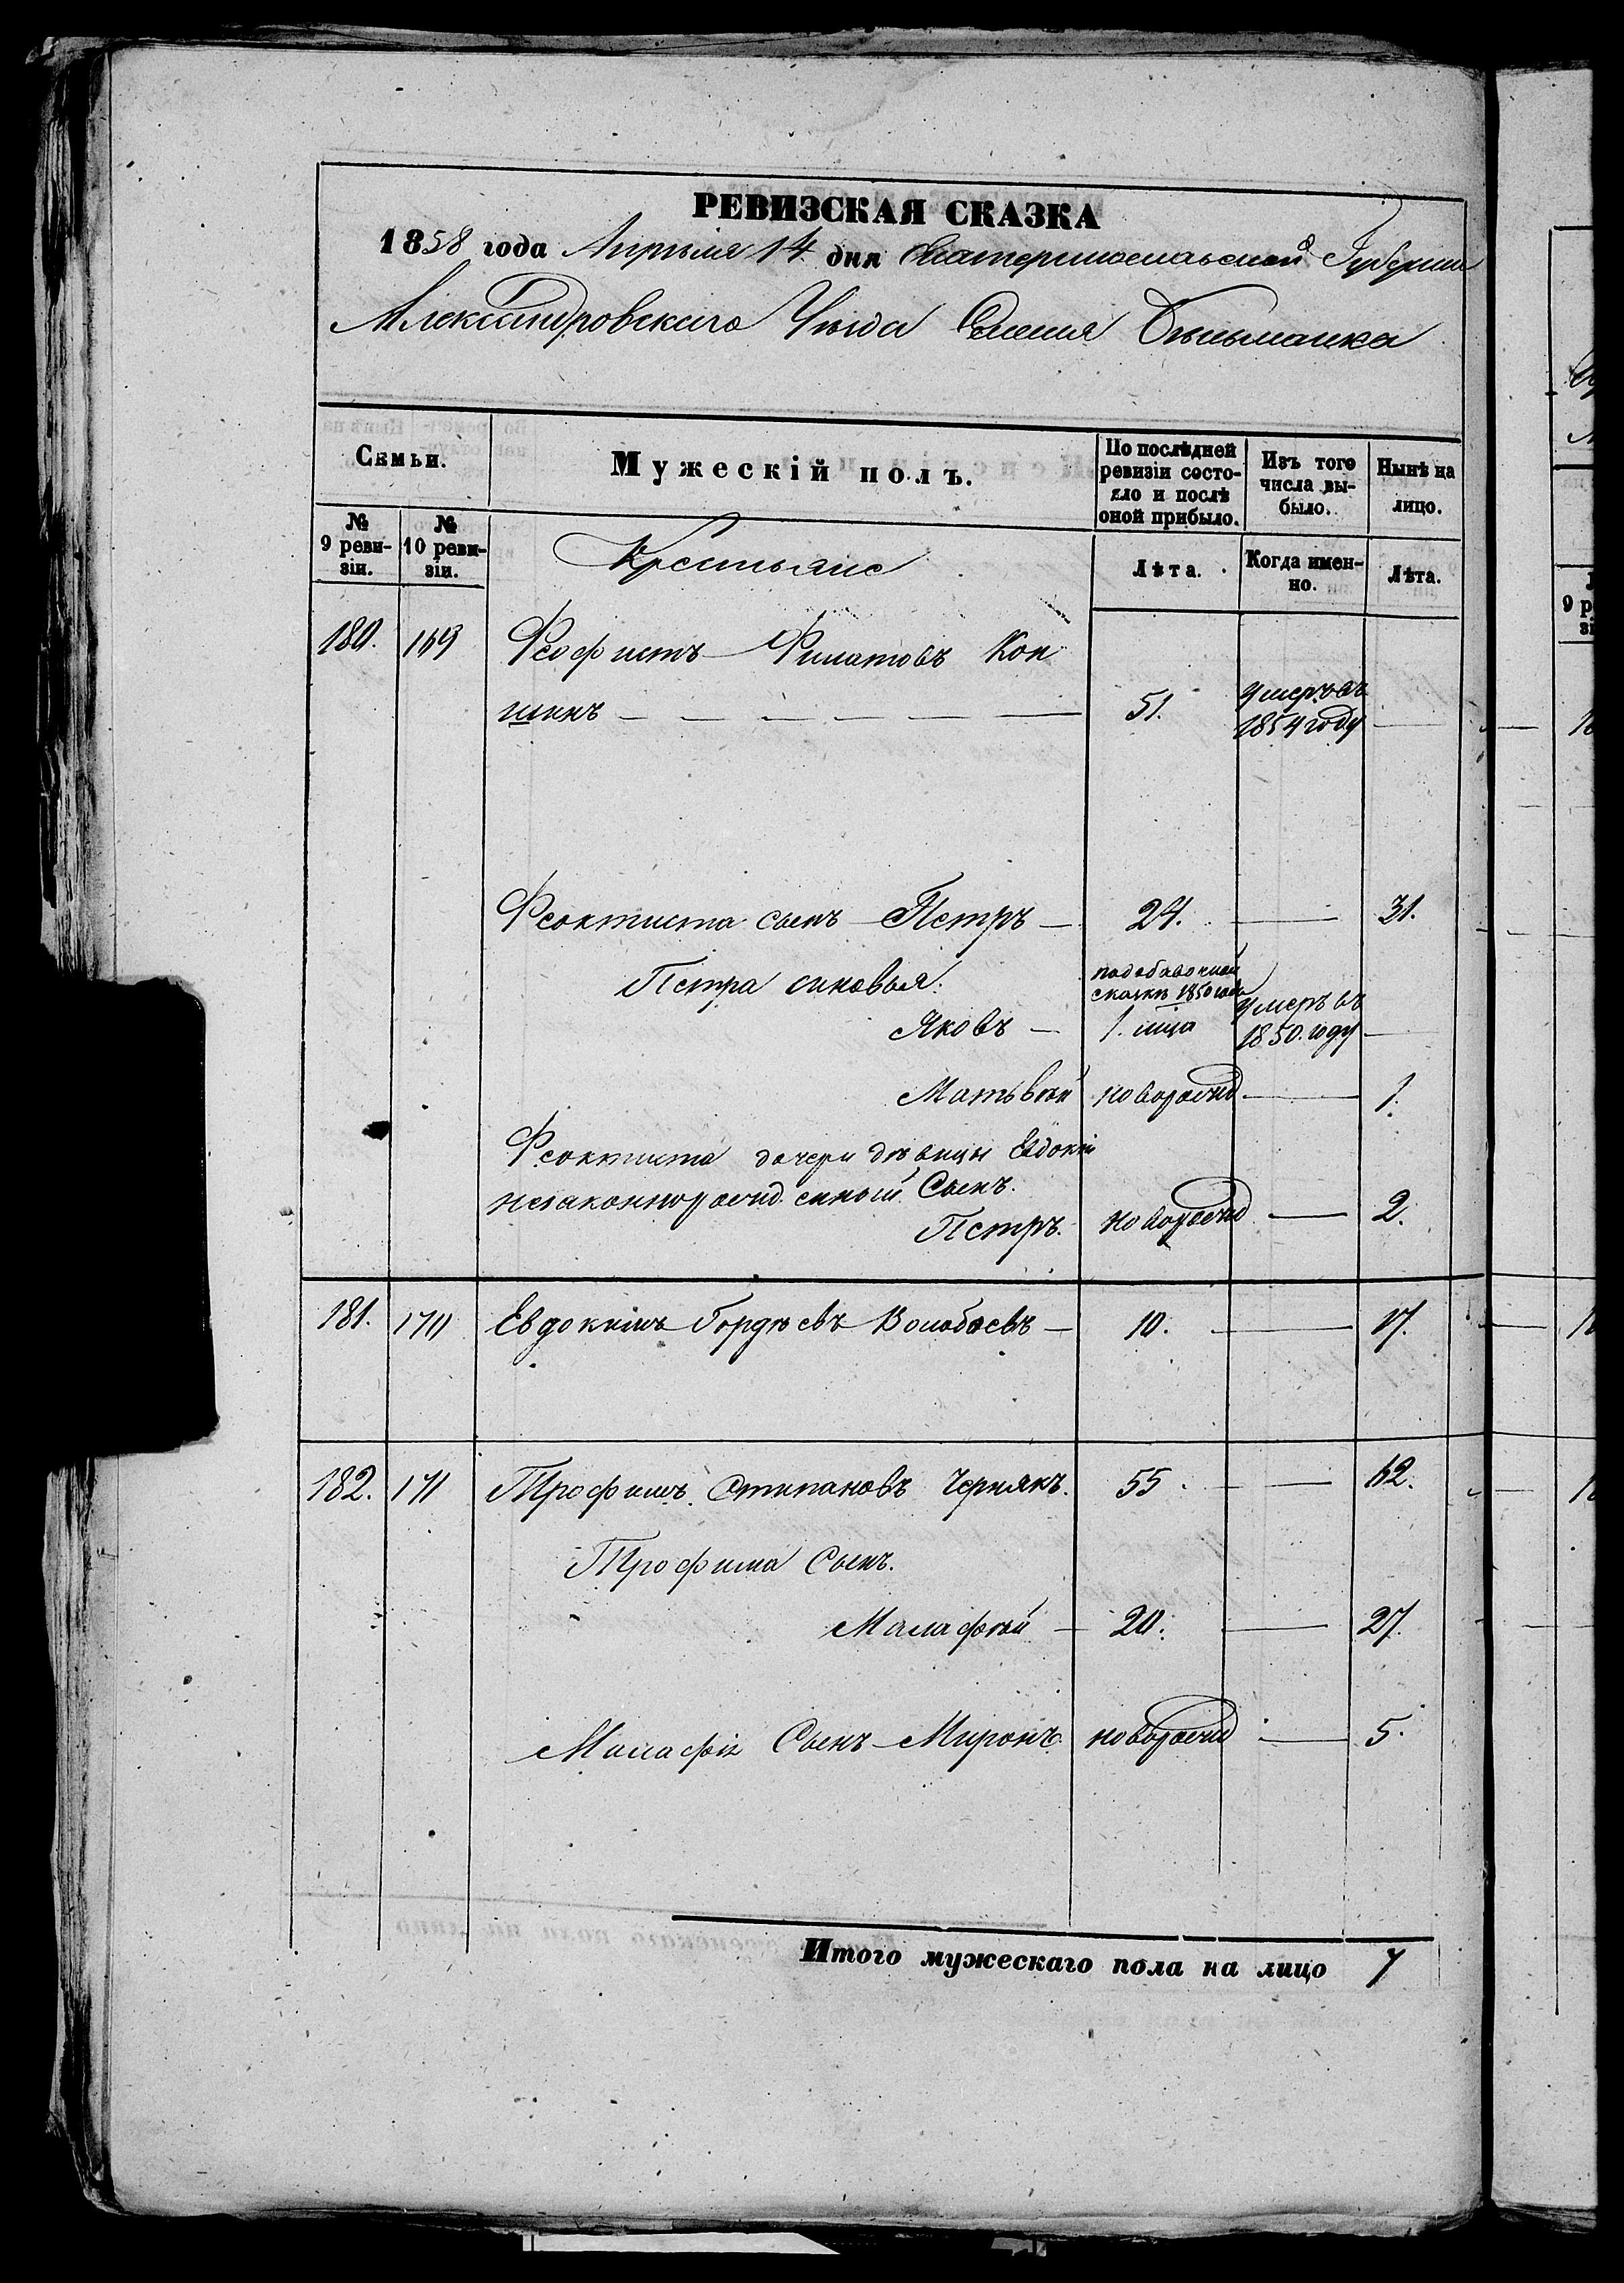 РЕВИЗСКАЯ СКАЗКА
1858 года Апрѣля 14 дня Екатеринославской Губерніи
Александровскаго Уѣзда Селенія Бѣльманка
Семьи. Мужескій полъ. По послѣдней ревизіи состояло и послѣ оной прибыло. Изъ того числа выбыло. Нынѣ на лицо.
№ 9 ревизіи. № 10 ревизіи. Крестьяне Лѣта. Когда именно. Лѣта.
180. 169 Феофистъ Филатовъ Коп
шинъ 51. умеръ въ 1854 году
Феоктиста сынъ Петръ 24. 31.
Петра сыновья: по добавочной сказкѣ 1850 года
Яковъ 1. мца умеръ въ 1850. году
Матьвей новорожд 1.
Феоктиста дочери дѣвицы Евдокіи
незаконнорожденный Сынъ.
Петръ. новорожд 2.
181. 170 Евдокимъ Гордѣевъ Волобоевъ 10. 17.
182. 171 Трофимъ Степановъ Чернякъ. 55 62.
Трофима Сынъ.
Малафѣй 20. 27.
Малафія Сынъ Миронъ новорожд 5.
Итого мужескаго пола на лицо 7
9 р